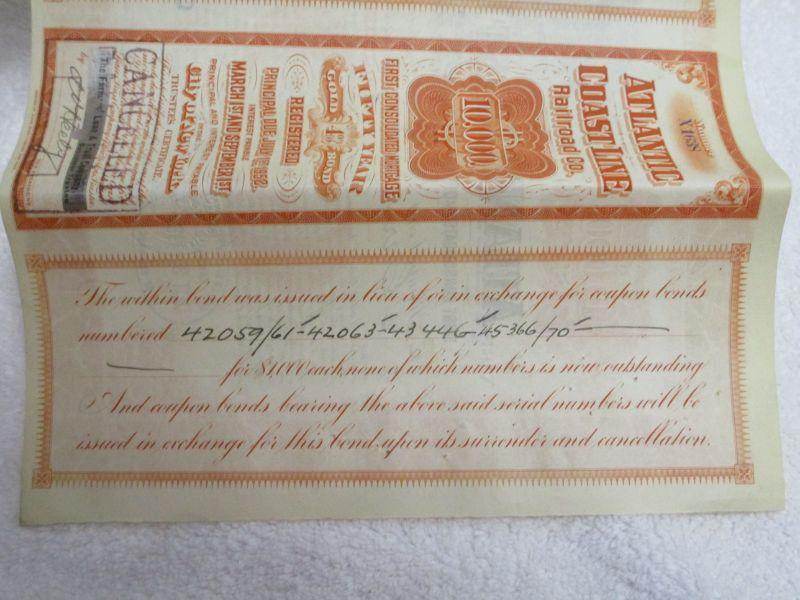 Number
X 1638
ATLANTIC
COAST LINE
Railroad Co.
10,000
FIRST CONSOLIDATED MORTGAGE
FIFTY YEAR
GOLD 4% BOND
REGISTERED
PRINCIPAL DUE JULY 1ST 1952.
INTEREST PAYABLE
MARCH 1ST AND SEPTEMBER 1ST
PRINCIPAL AND INTEREST PAYABLE
City of New York
TRUSTEE'S CERTIFICATE.
CANCELLED
The within bond was issued in lieu of or in exchange for coupon bonds
numbered 42059/61-42063-43446-45366/70
for $1,000 each, none of which numbers is now outstanding
And coupon bonds bearing the above said serial numbers will be
issued in exchange for this bond upon its surrender and cancellation.